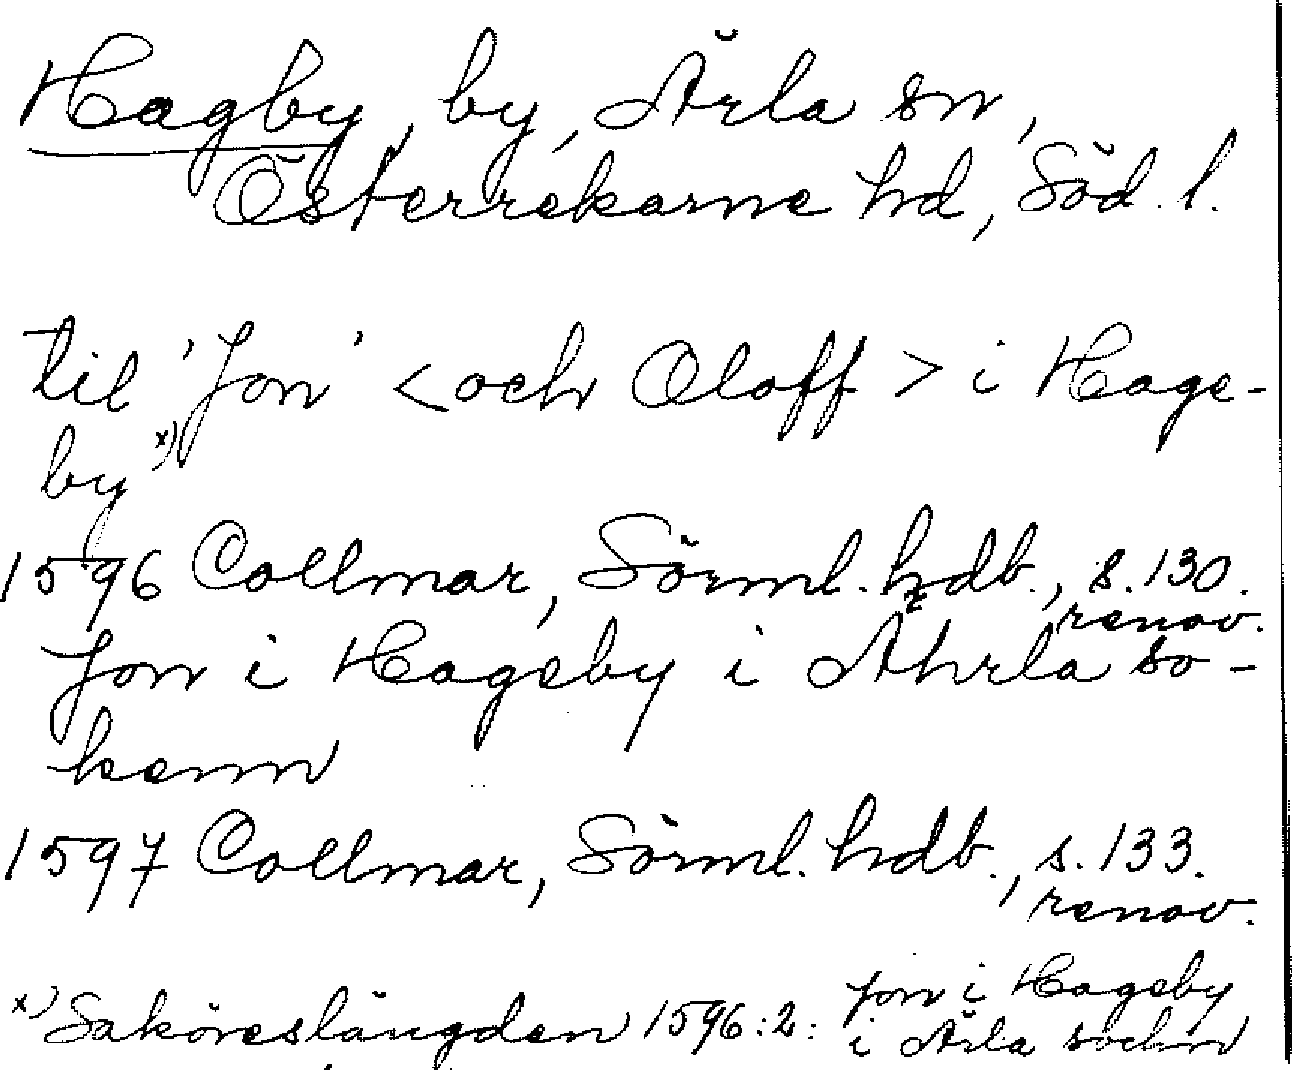 Hagby, by, Ärla sn,
Österrekarne hd, Söd. l.
til 'Jon' <och Oloff> i Hage-
by x)
1596 Collmar, Sörml. hdb., s. 130.
renov.
Jon i Hageby i Åhrla so-
kenn
1597 Collmar, Sörml. hdb., s. 133.
renov.
x) Saköreslängden 1596:2: Jon i Hageby
i Ärla sochn